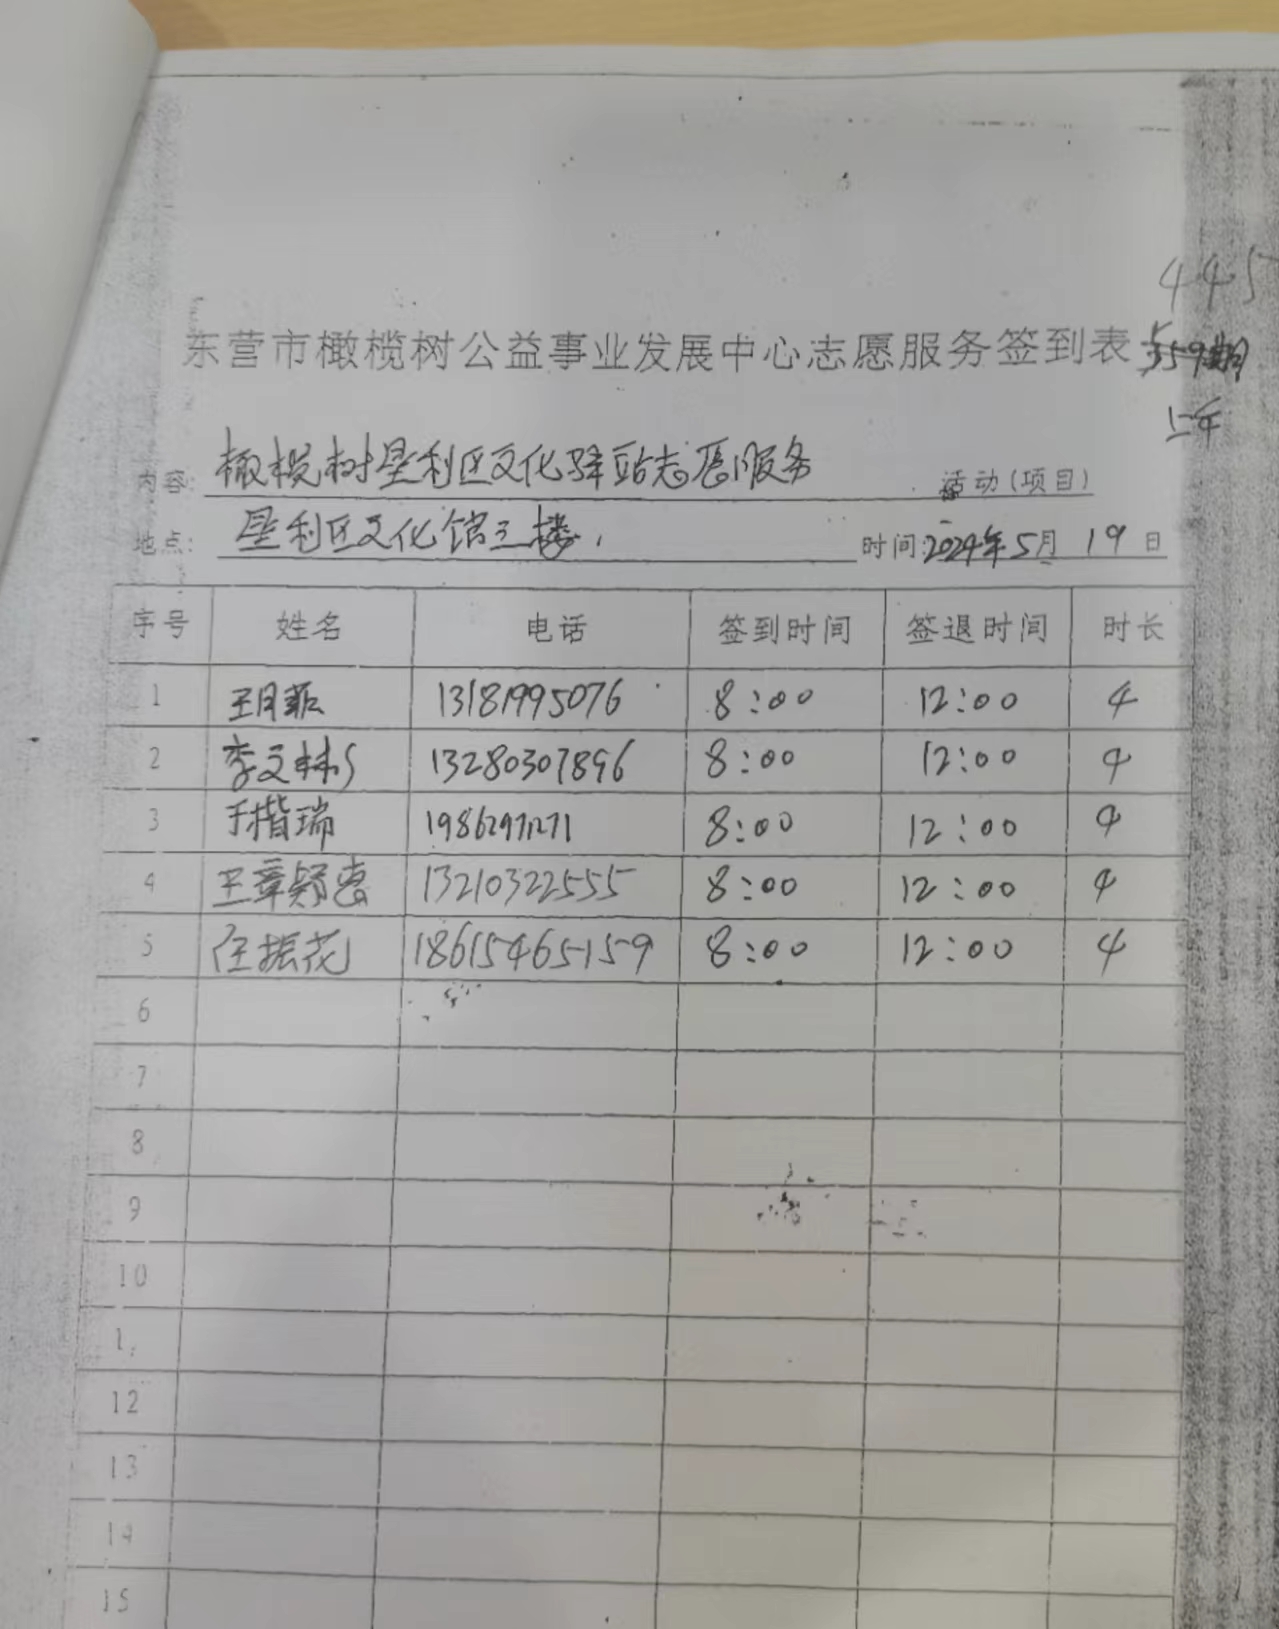 445
东营市橄榄树公益事业发展中心志愿服务签到表 359期
上午
内容: 橄榄树垦利区文化驿站志愿服务 活动(项目)
地点: 垦利区文化馆三楼. 时间:2024年5月19日
序号 姓名 电话 签到时间 签退时间 时长
1 王月菲 13181995076 8:00 12:00 4
2 李文彬 13280307896 8:00 12:00 4
3 于楷瑞 8:00 12:00 4
4 13210322555 8:00 12:00 4
5 任振花 18615465159 8:00 12:00 4
6
7
8
9
10
12
13
14
15